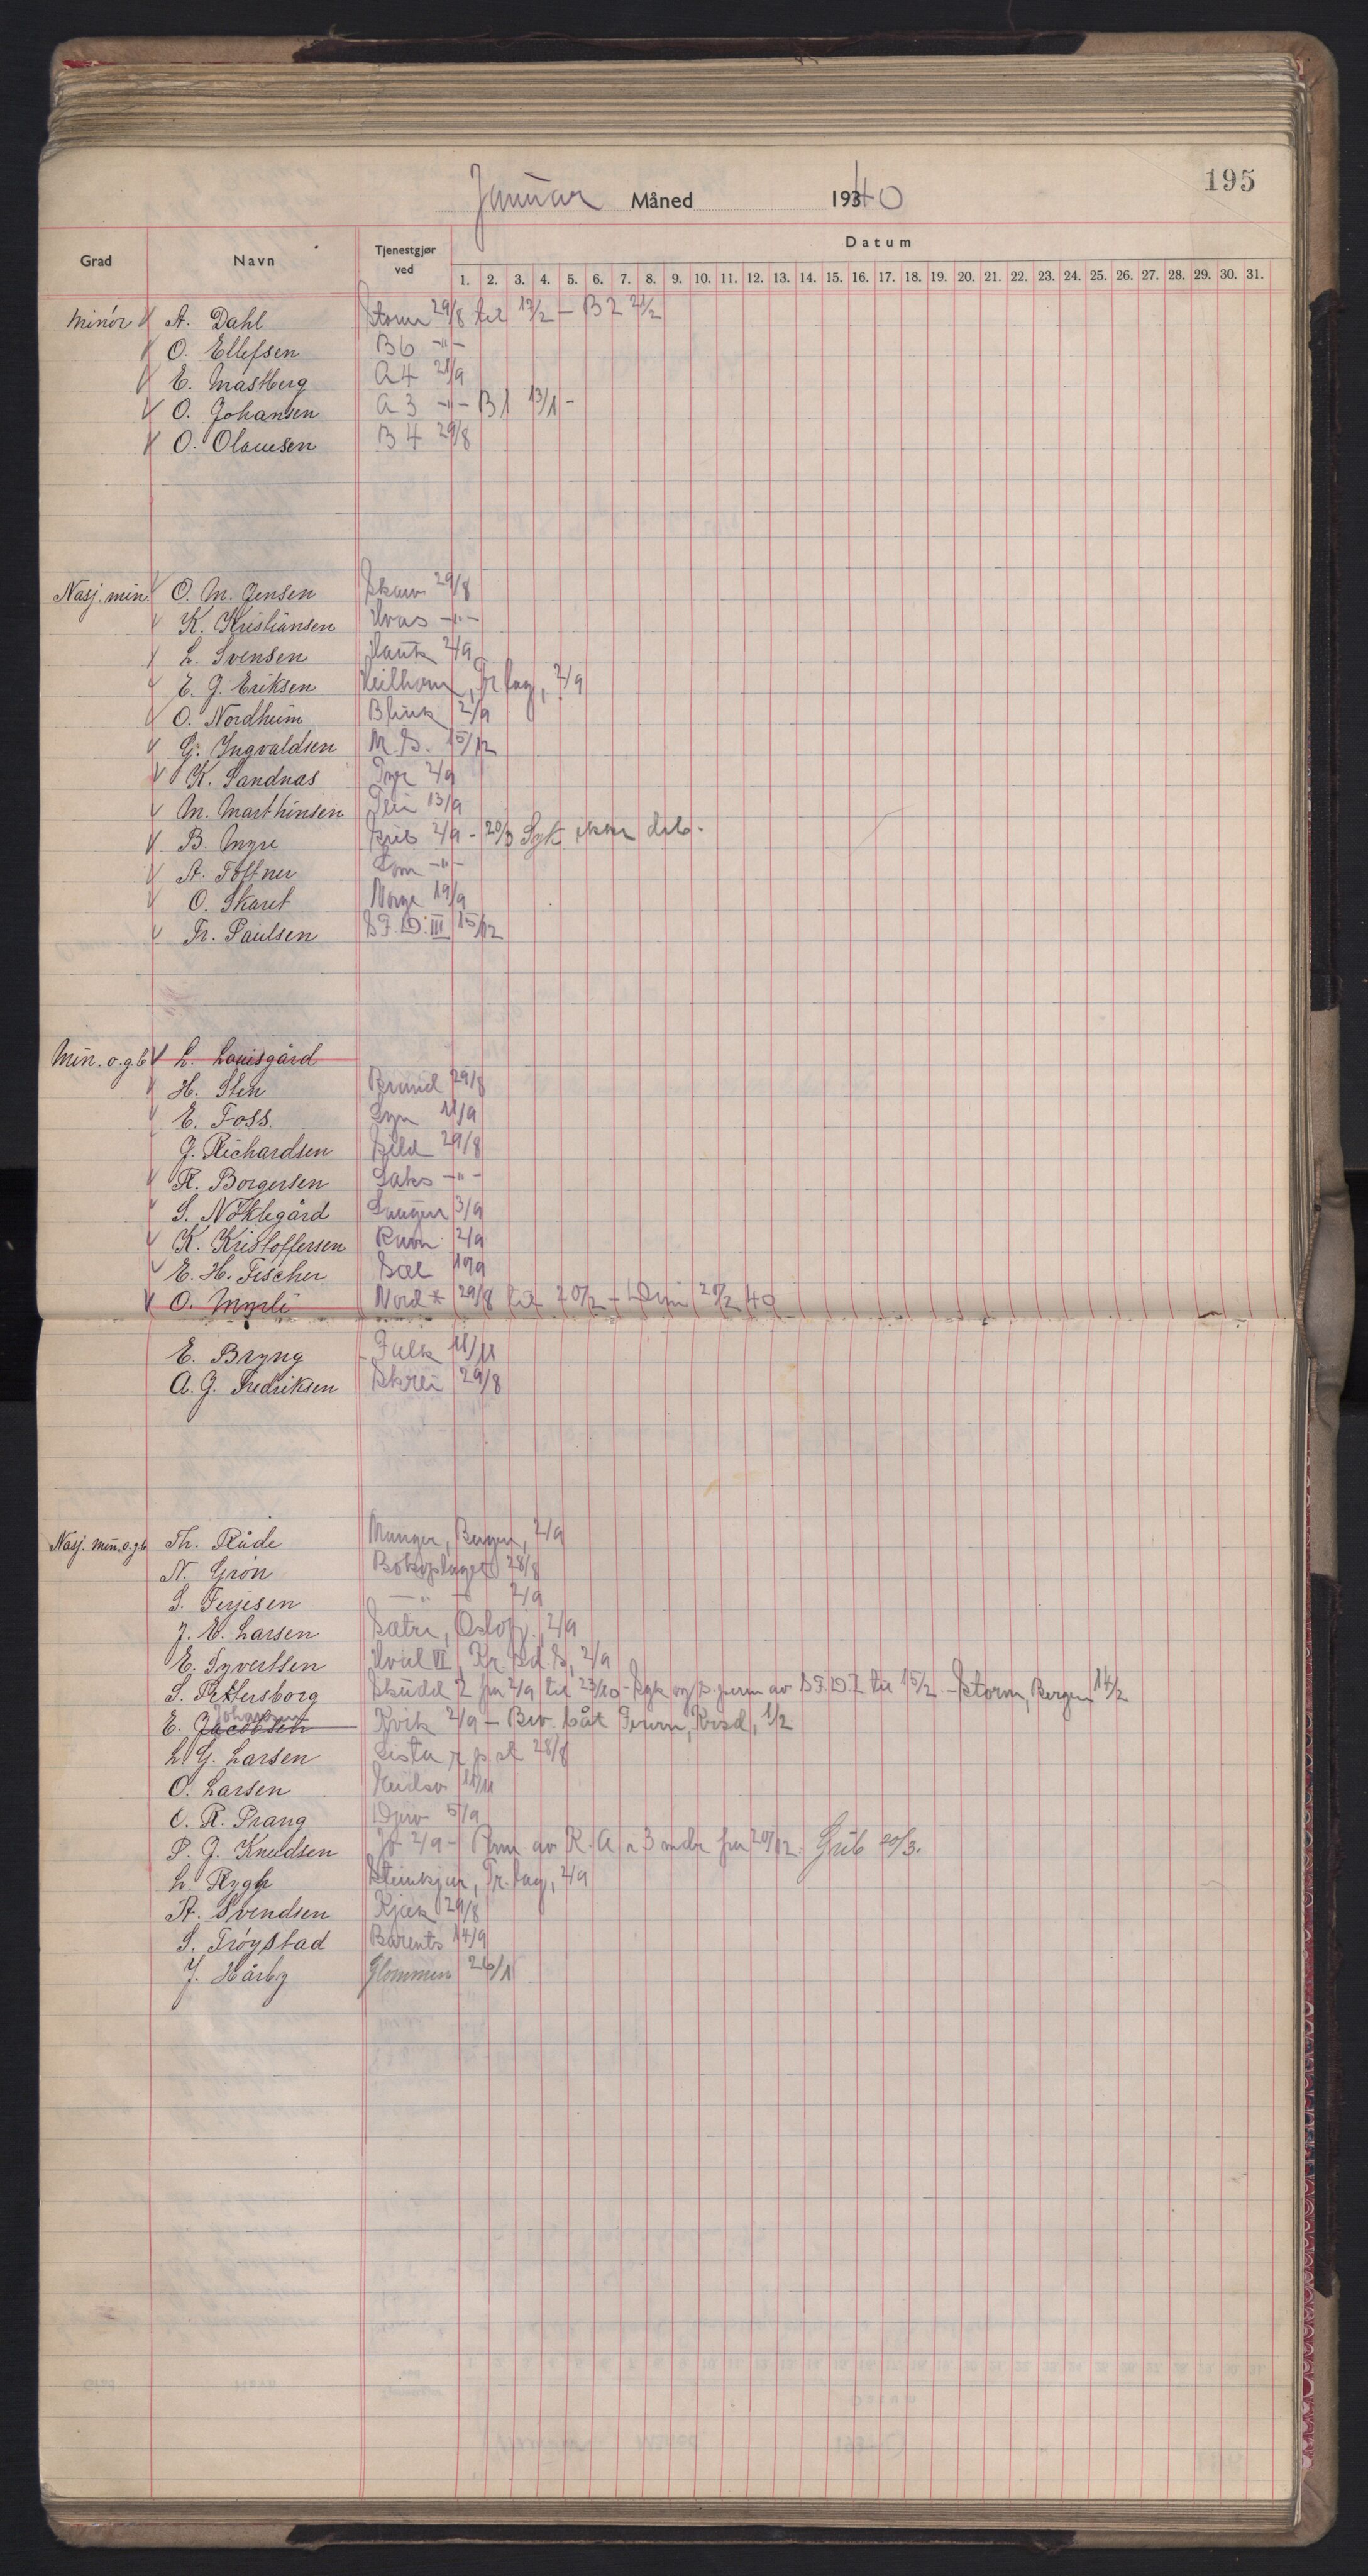 195
Januar Måned 1940
Grad Navn Tjenestgjør ved Datum
1. 2. 3. 4. 5. 6. 7. 8. 9. 10. 11. 12. 13. 14. 15. 16. 17. 18. 19. 20. 21. 22. 23. 24. 25. 26. 27. 28. 29. 30. 31.
Minör A. Dahl Storm 29/8 til 17/2 — B2 21/2
O. Ellefsen B6 —"—
E. Mastberg A4 21/9
O. Johansen A3 —"— B1 13/1 -
O. Olausen B4 29/8
Nasj. min. O. M. Jensen Skarv 29/8
K. Kristiansen Hvas —"—
L. Svensen Hauk 2/9
E. G. Eriksen Heilhorn, Tr.lag, 2/9
O. Nordheim Blink 2/9
G. Ingvaldsen M.S. 15/12
K. Sandnas Tyr 2/9
M. Marthinsen 13/9
B. Myre 2/9 - 20/3 Syk ikke
A. Toftner Lom —"—
O. Skaret Norge 19/9
Fr. Paulsen S.F.D. III 15/12
Min. o.g.b L. Lauisgård
H. Sten Brand 29/8
E. Foss. Lyn 11/9
G. Richardsen Kield 29/8
R. Borgersen Laks —"—
S. Nöklegård Laugen 3/9
K. Kristoffersen Ravn 2/9
E. H. Fischer Sæl 19/9
O. Myrli Nord * 29/8 til 20/2 - 20/2 40
E. Bryng Falk 11/11
A. G. Fredriksen Skrei 29/8
Nasj. min. o.g.b Th. Råde Manger, Bergen, 2/9
N. Grön 28/8
S. Terjesen —"— 2/9
J. E. Larsen Sætre, Oslofj., 2/9
E. Syvertsen Hval VI, Kr.sd S, 2/9
S. Pettersborg Skudd 2 fra 2/9 til 27/10 - Syk og perm av S.F.D.2 til 15/2 - Storm, Bergen 14/2
E. Jacobsen Johansen Kvik 2/9 - Bev. båt Krsd, 1/2
L. G. Larsen Lista r p st 28/8
O. Larsen 11/11
O. R. Prang Djerv 5/9
P. G. Knudsen Jo 2/9 - Perm av K.A. i 3 mdr fra 20/12. Grib 20/3.
L. Rygh Steinkjær, Tr.lag, 2/9
A. Svendsen Kjæk 29/8
S. Tröystad Barents 14/9
J. Hårby Glommen 26/1